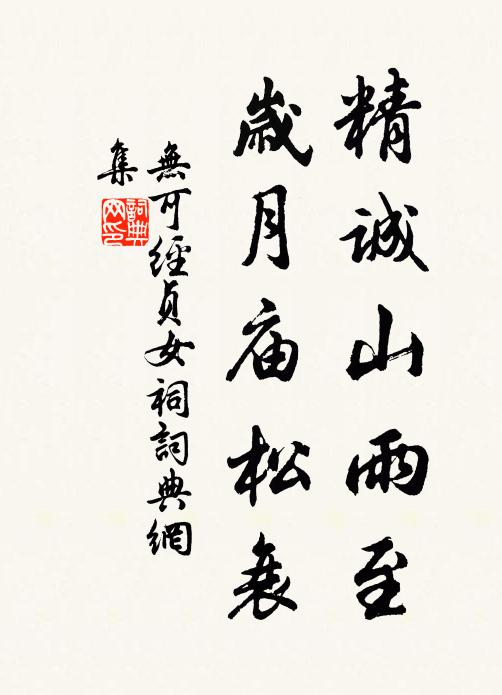 精誠山雨至
歲月庙松衰
無可經貞女祠詞典網
集
詞典
网印